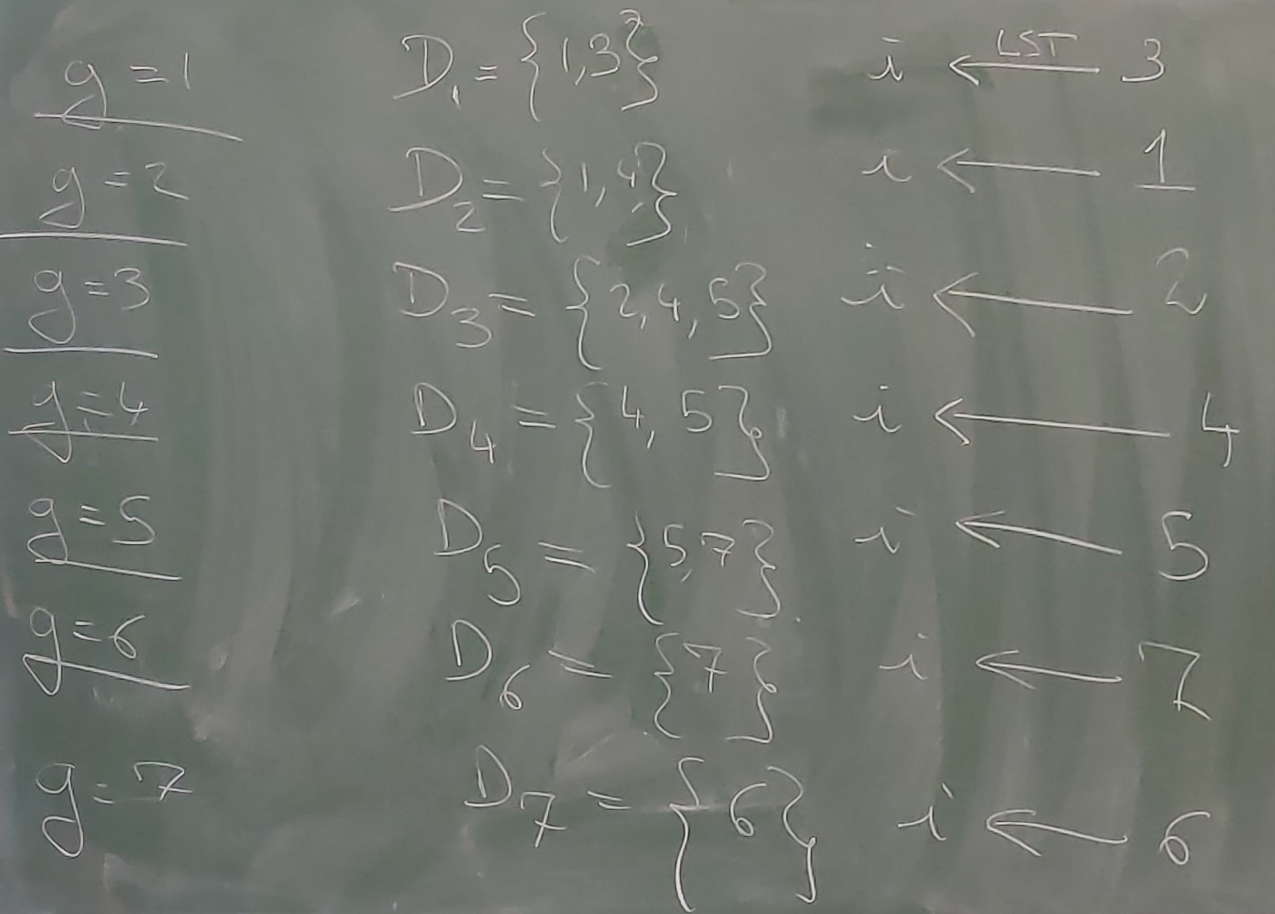 g=1 D₁={1,3} i ←LST 3
g=2 D₂={1,4} i ← 1
g=3 D₃={2,4,5} i ← 2
g=4 D₄={4,5} i ← 4
g=5 D₅={5,7} i ← 5
g=6 D₆={7} i ← 7
g=7 D₇={6} i ← 6